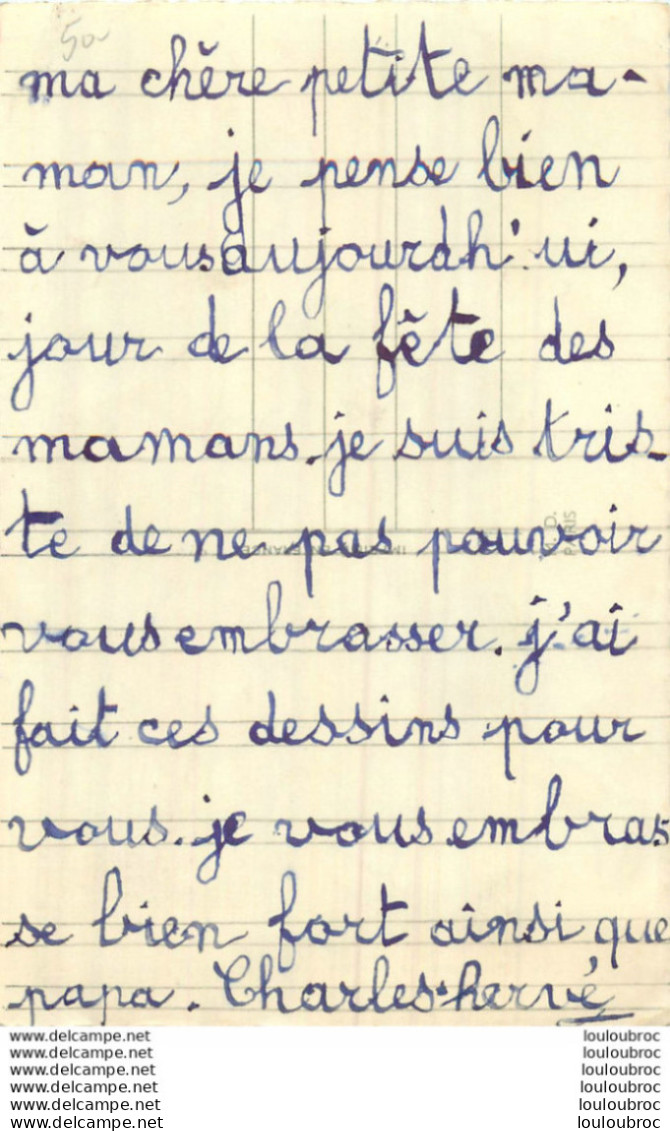 50
ma chère petite ma-
man, je pense bien
à vous aujourdh'ui,
jour de la fête des
mamans. je suis tris-
te de ne pas pouvoir
vous embrasser. j'ai
fait ces dessins pour
vous. je vous embras
se bien fort ainsi que
papa. Charles-hervé
www.delcampe.net louloubroc
www.delcampe.net louloubroc
www.delcampe.net louloubroc
www.delcampe.net louloubroc
www.delcampe.net louloubroc
www.delcampe.net louloubroc